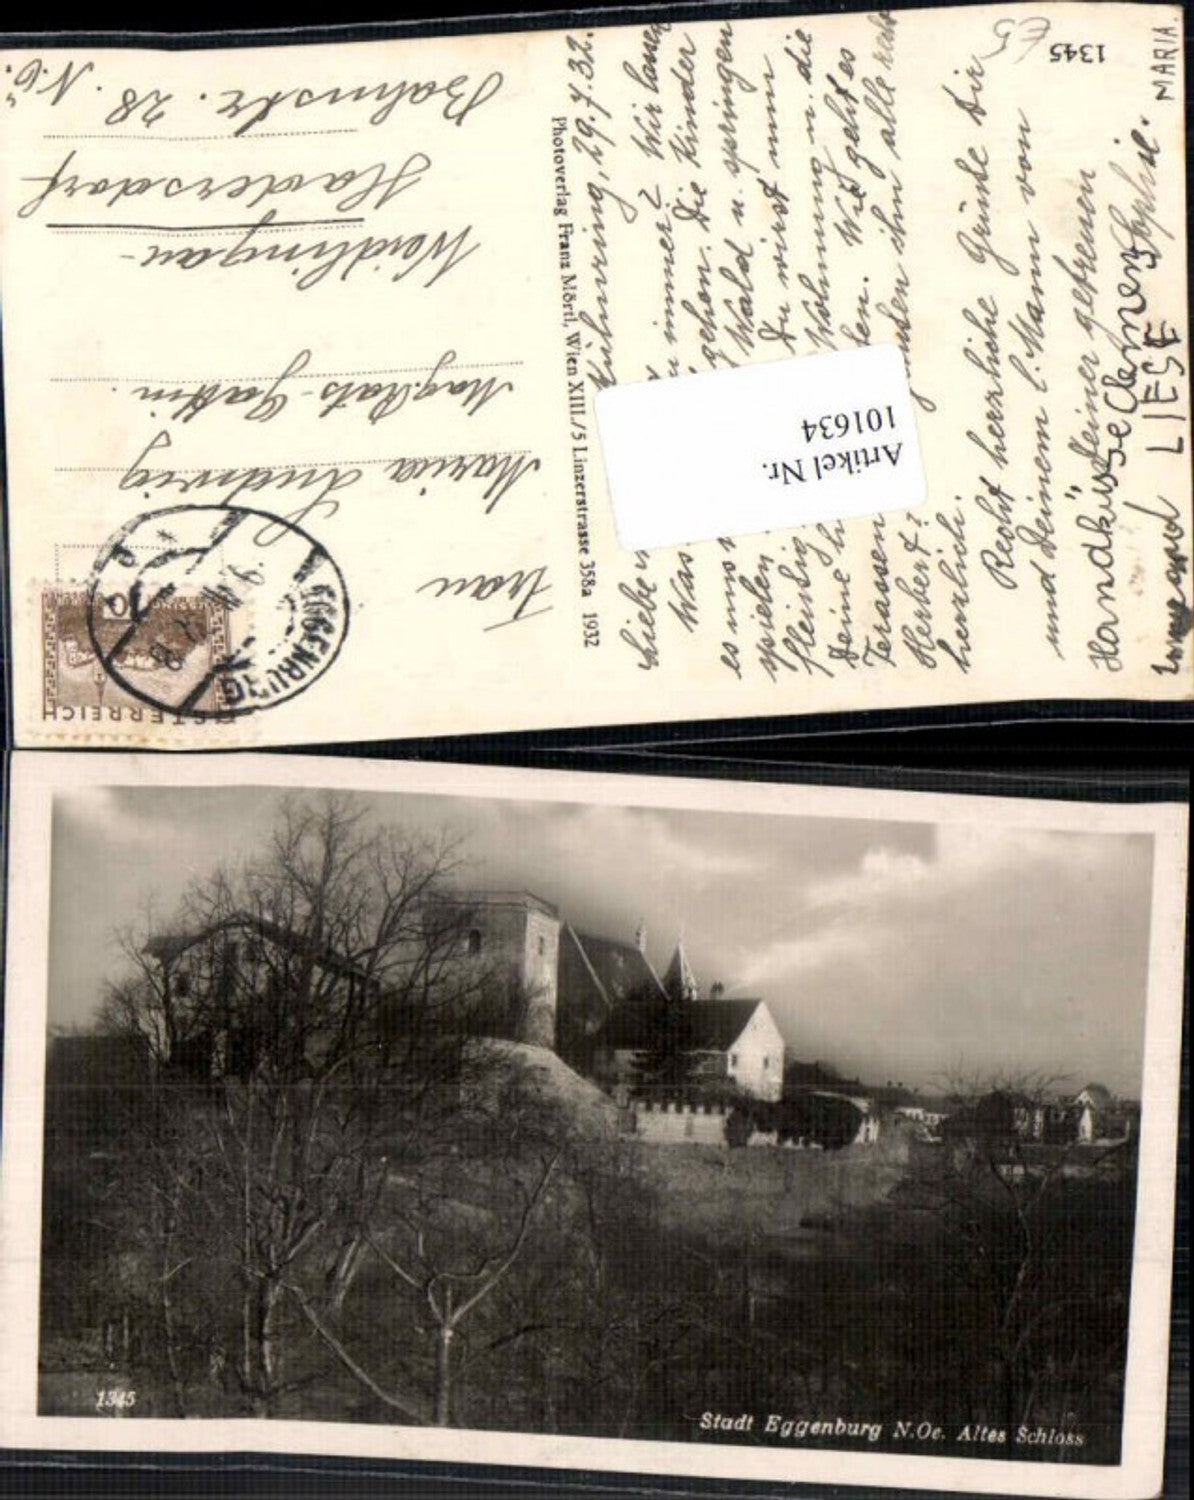 1345
E5
Kühnring, 29.7.32.
Liebe
Was immer? Wir lassen
es uns gehen. Die Kinder
spielen Wald u. springen
fleissig. Du wirst nun
Deine Wohnung u. die
Terassen Wie geht es
Herbert? ihn alle recht
herzlich.
Recht herzliche Grüsse Dir
und Deinem l. Mann von
Deiner getreuen
Sophie.
Handküsse Clemens
LIESE
MARIA.
Photoverlag Franz Mörtl, Wien XIII./5 Linzerstrasse 358a 1932
ÖSTERREICH
10
EGGENBURG
Frau
Maria Ludwig
Mag. Rats-Gattin.
Weidlingau-
Hadersdorf
Bahnstr. 28. N.Ö.
Artikel Nr.
101634
1345
Stadt Eggenburg N.Oe. Altes Schloss